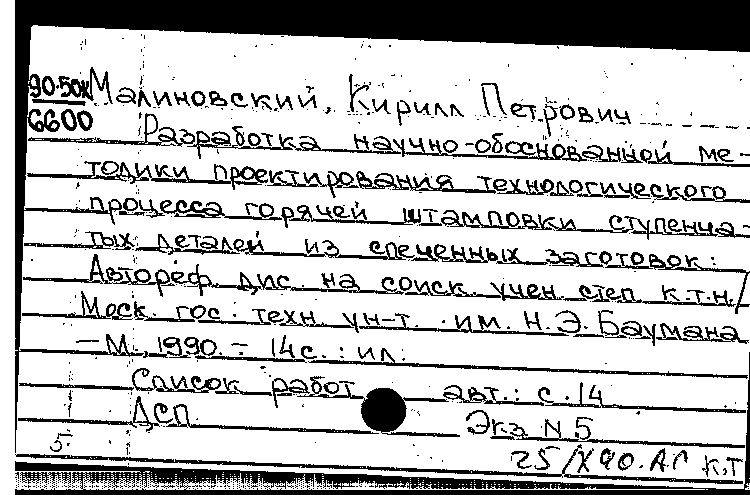 90-50к Малиновский, Кирилл Петрович
6600
Разработка научно-обоснованной ме-
тодики проектирования технологического
процесса горячей штамповки ступенча-
тых деталей из спеченных заготовок:
Автореф. дис. на соиск. учен. степ. к.т.н./
Моск. гос. техн. ун-т. им. Н.Э. Баумана
— М., 1990. – 14 с.: ил.
Список работ авт.: с. 14
ДСП Экз N 5
5. 25/X 90. АГ к.т